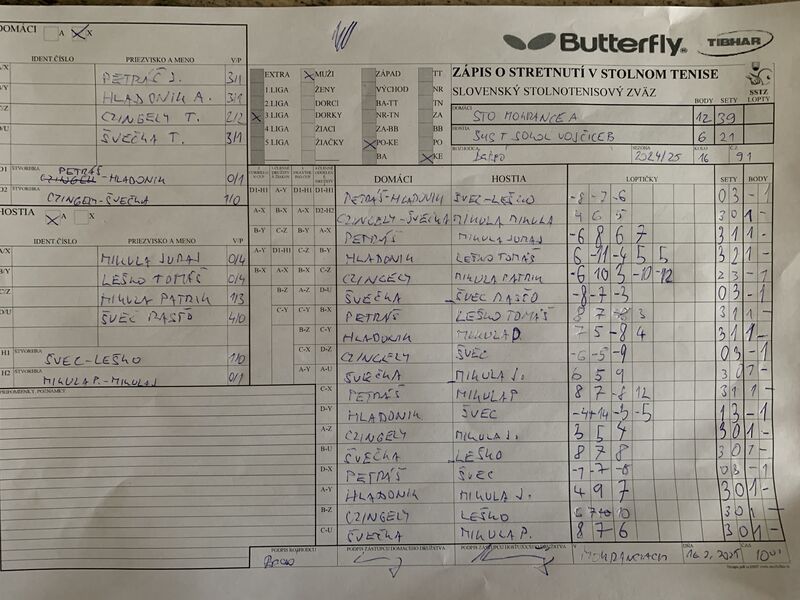 DOMÁCI A X
IDENT.ČÍSLO PRIEZVISKO A MENO V/P
A/X PETRÁŠ J. 3/1
B/Y HLADONIK A. 3/1
C/Z CZINGELY T. 2/2
D/U ŠVEČKA T. 3/1
D1 ŠTVORHRA PETRÁŠ
HLADONIK 0/1
D2 ŠTVORHRA CZINGELY-ŠVEČKA 1/0
HOSTIA A X
IDENT.ČÍSLO PRIEZVISKO A MENO V/P
A/X MIKULA JURAJ 0/4
B/Y LEŠKO TOMÁŠ 0/4
C/Z MIKULA PATRIK 1/3
D/U ŠVEC RASŤO 4/0
H1 ŠTVORHRA ŠVEC-LEŠKO 1/0
H2 ŠTVORHRA MIKULA P.-MIKULA J. 0/1
PRIPOMIENKY, POZNÁMKY
Butterfly TIBHAR
ZÁPIS O STRETNUTÍ V STOLNOM TENISE
SLOVENSKÝ STOLNOTENISOVÝ ZVÄZ
SSTZ
EXTRA MUŽI ZÁPAD TT
1.LIGA ŽENY VÝCHOD NR
2.LIGA DORCI BA-TT TN
3.LIGA DORKY NR-TN ZA
4.LIGA ŽIACI ZA-BB BB
5.LIGA ŽIAČKY PO-KE PO
BA KE
BODY SETY LOPTY
DOMÁCI STO MOKRANCE A 12 39
HOSTIA SUST SOKOL VOJČICE B 6 21
ROZHODCA SEZÓNA 2024/25 KOLO 16 Č. 91
DOMÁCI HOSTIA LOPTIČKY SETY BODY
D1-H1 PETRÁŠ-HLADONIK ŠVEC-LEŠKO -8 -7 -6 0 3 - 1
D2-H2 CZINGELY-ŠVEČKA MIKULA MIKULA 4 6 5 3 0 1 -
A-X PETRÁŠ MIKULA JURAJ -6 8 6 7 3 1 1 -
B-Y HLADONIK LEŠKO TOMÁŠ 6 -11 -4 5 5 3 2 1 -
C-Z CZINGELY MIKULA PATRIK -6 10 3 -10 -12 2 3 - 1
D-U ŠVEČKA ŠVEC RASŤO -8 -7 -3 0 3 - 1
B-X PETRÁŠ LEŠKO TOMÁŠ 8 7 -8 3 3 1 1 -
C-Y HLADONIK MIKULA P. 7 5 -8 4 3 1 1 -
D-Z CZINGELY ŠVEC -6 -5 -9 0 3 - 1
A-U ŠVEČKA MIKULA J. 6 5 9 3 0 1 -
C-X PETRÁŠ MIKULA P 8 7 -8 12 3 1 1 -
D-Y HLADONIK ŠVEC -4 +14 -3 -5 1 3 - 1
A-Z CZINGELY MIKULA J. 3 5 4 3 0 1 -
B-U ŠVEČKA LEŠKO 8 7 8 3 0 1 -
D-X PETRÁŠ ŠVEC 0 3 - 1
A-Y HLADONIK MIKULA J. 4 9 7 3 0 1 -
B-Z CZINGELY LEŠKO 3 0 1 -
C-U ŠVEČKA MIKULA P. 8 7 6 3 0 1 -
PODPIS ROZHODCU PODPIS ZÁSTUPCU DOMÁCEHO DRUŽSTVA PODPIS ZÁSTUPCU HOSŤUJÚCEHO DRUŽSTVA V MOKRANCIACH DŇA 16.2.2025 ČAS 10:00